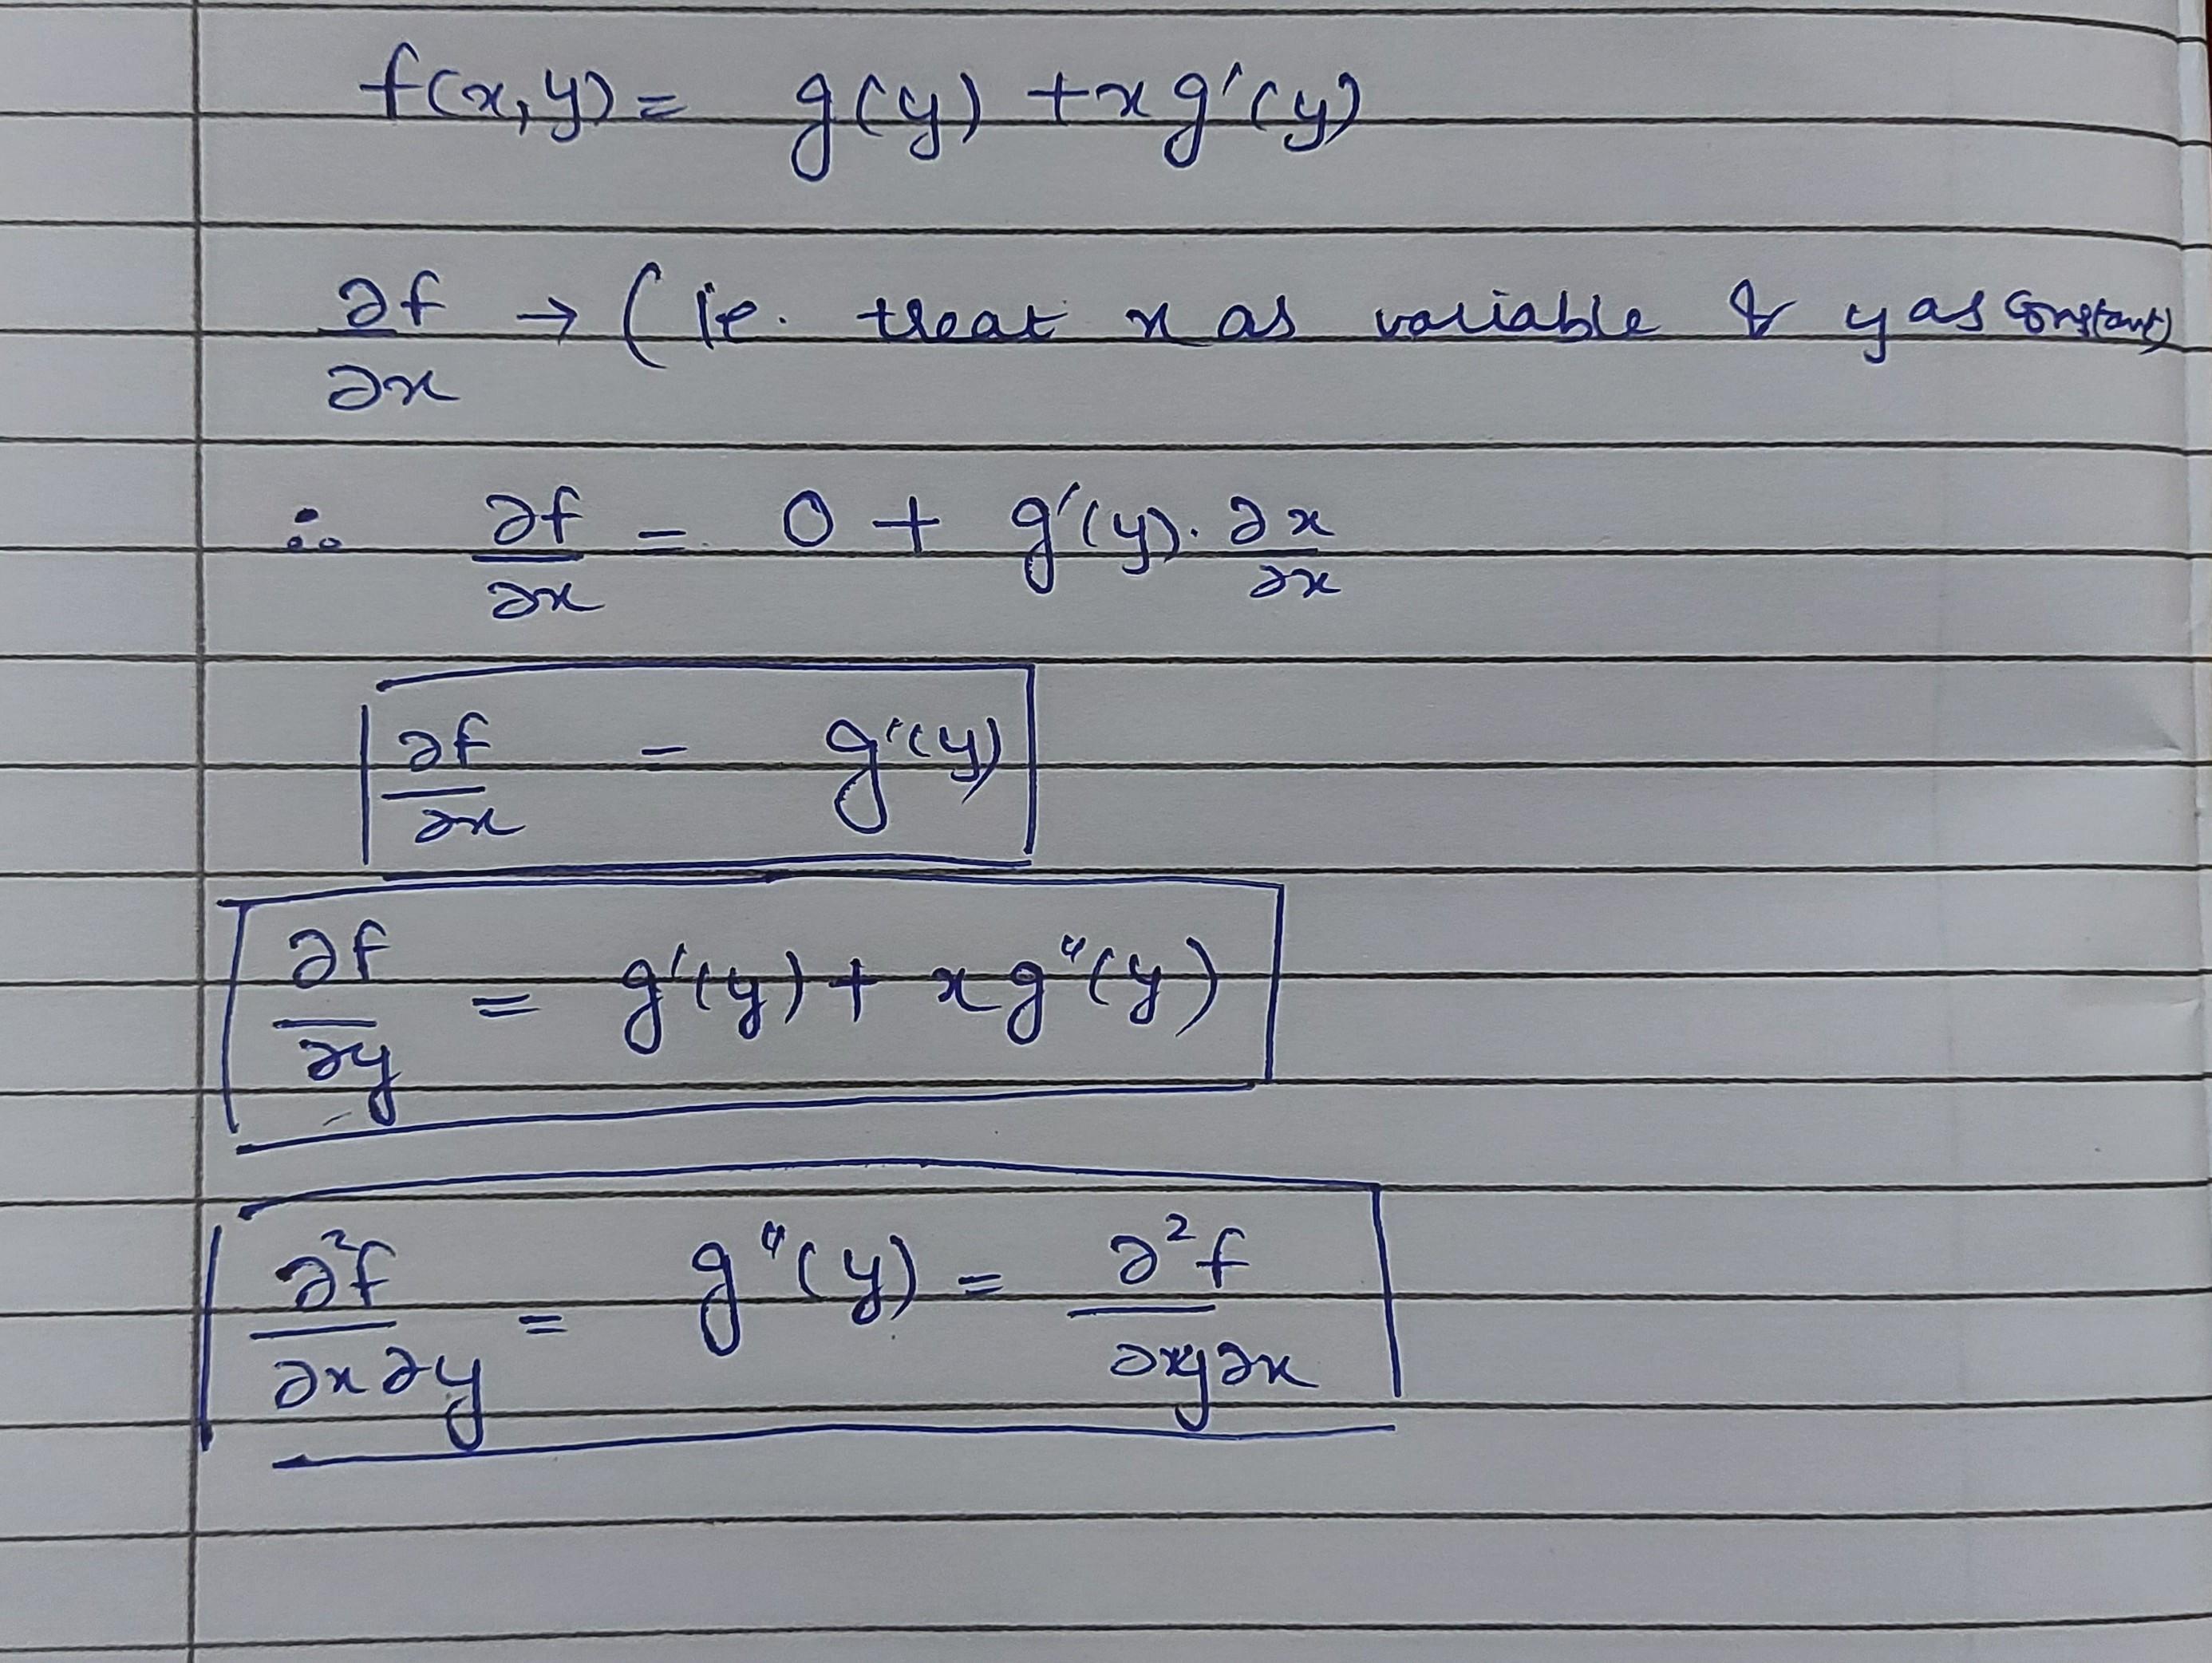 f(x, y) = g(y) + x g'(y)
∂f/∂x → (ie. treat x as variable & y as constant)
∴ ∂f/∂x = 0 + g'(y). ∂x/∂x
∂f/∂x = g'(y)
∂f/∂y = g'(y) + x g"(y)
∂²f/∂x∂y = g"(y) = ∂²f/∂y∂x